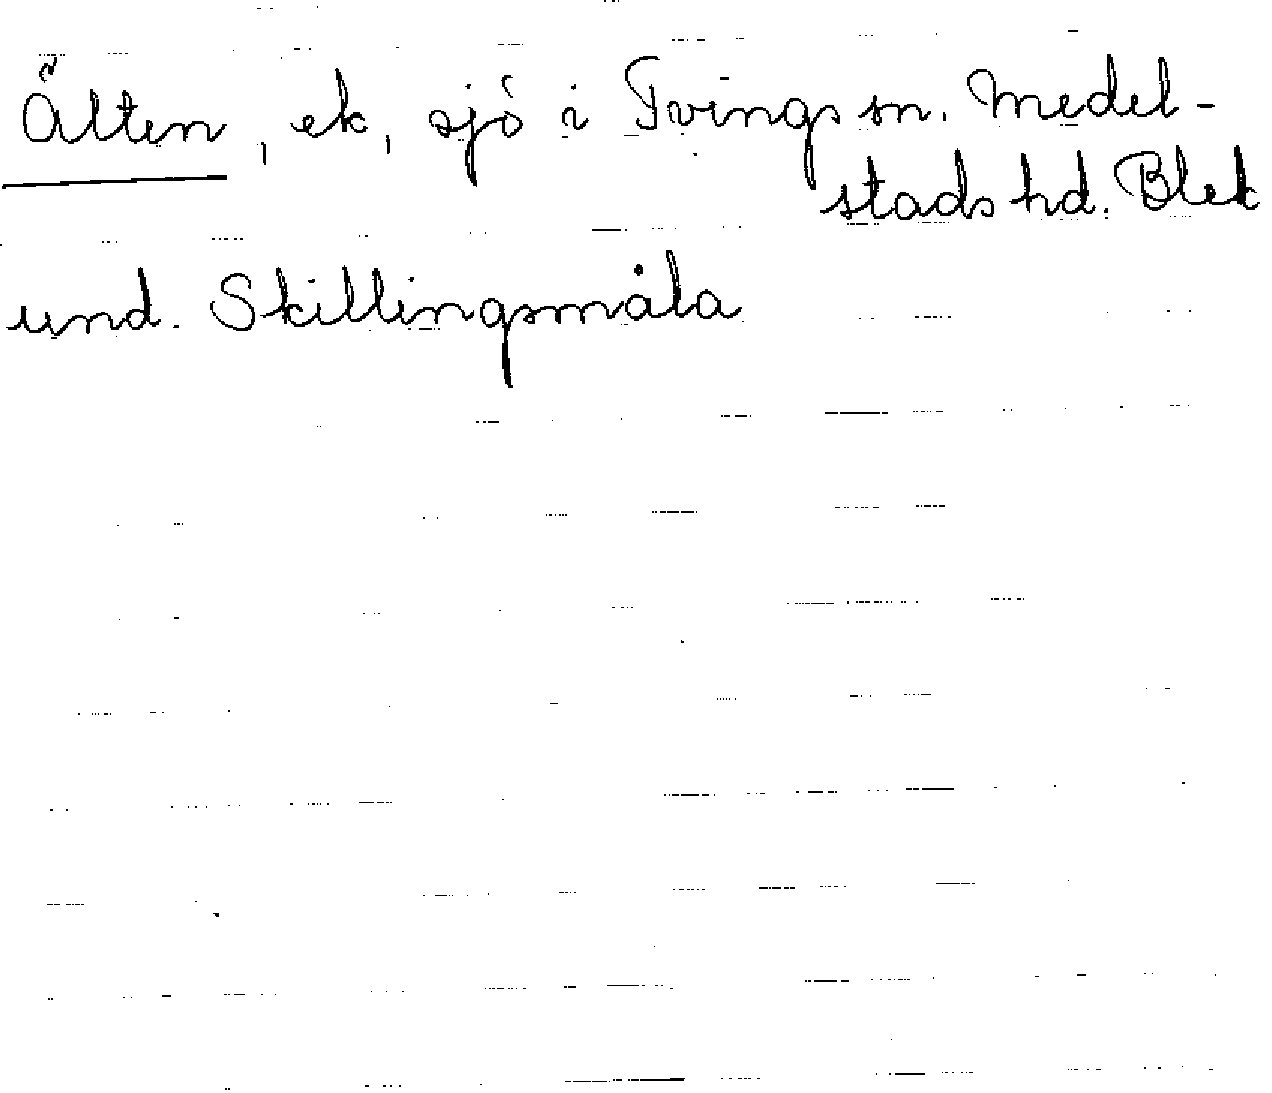 Älten, ek, sjö i Tvings sn. Medel-
stads hd. Blek
und. Skillingsmåla